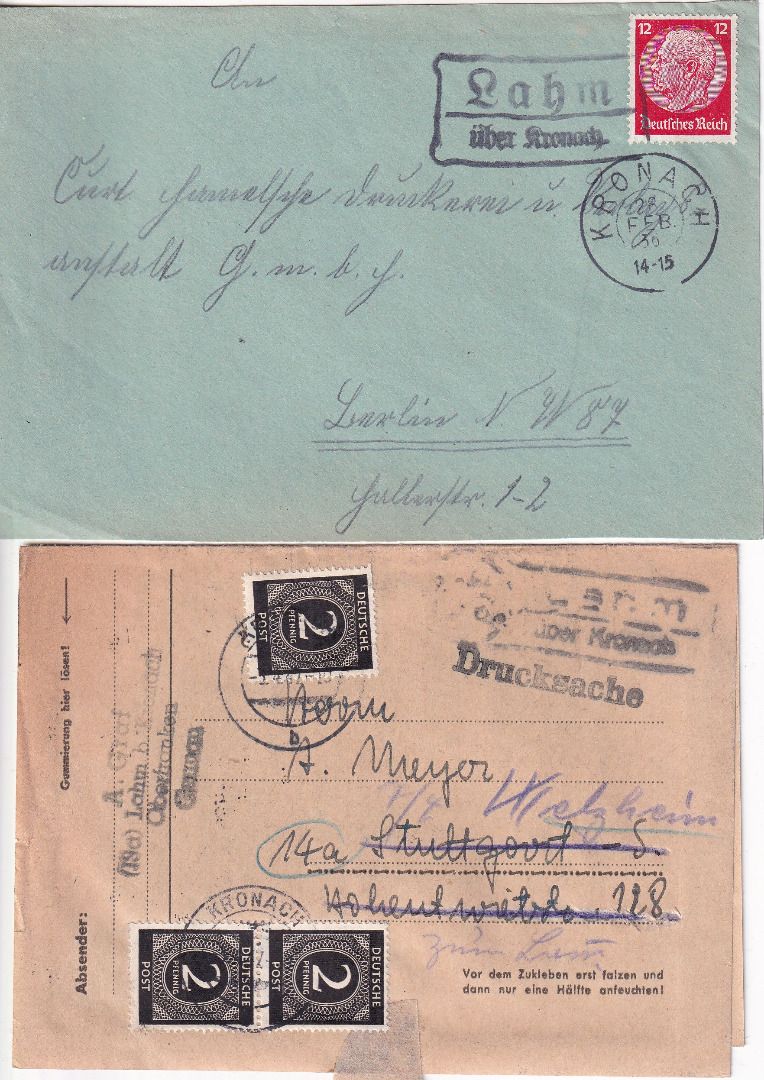 An
Lahm
über Kronach
12 12
Deutsches Reich
KRONACH
28
FEB.
36
14-15
Curt Hamelsche Druckerei u.
anstalt G. m. b. H.
Berlin N W 87
Hallerstr. 1-2
Gummierung hier lösen!
Absender:
A. Graf
(13a) Lahm b. Kronach
Oberfranken
Germany
DEUTSCHE
2
PFENNIG
POST
b
über Kronach
Drucksache
Herrn
A. Meyer
Welzheim
14a Stuttgart-S.
128
zum
KRONACH
DEUTSCHE
2
PFENNIG
POST
DEUTSCHE
2
PFENNIG
POST
Vor dem Zukleben erst falzen und
dann nur eine Hälfte anfeuchten!